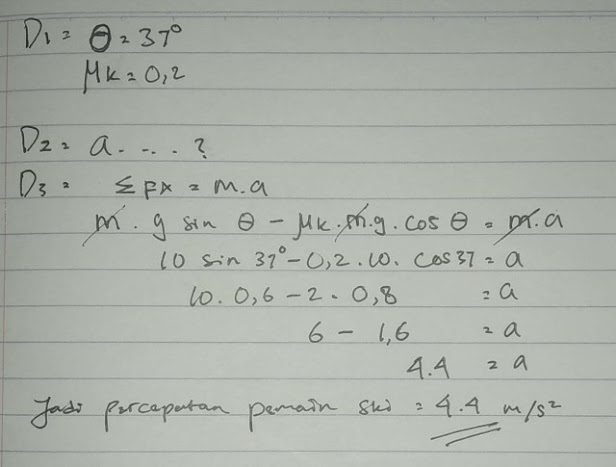 D1 = θ = 37°
μk = 0,2
D2 = a. . . . ?
D3 = Σ Fx = m.a
m . g sin θ - μk . m.g . cos θ = m.a
10 sin 37° - 0,2 . 10 . cos 37 = a
10. 0,6 - 2 . 0,8 = a
6 - 1,6 = a
4.4 = a
Jadi percepatan pemain ski = 4.4 m/s²